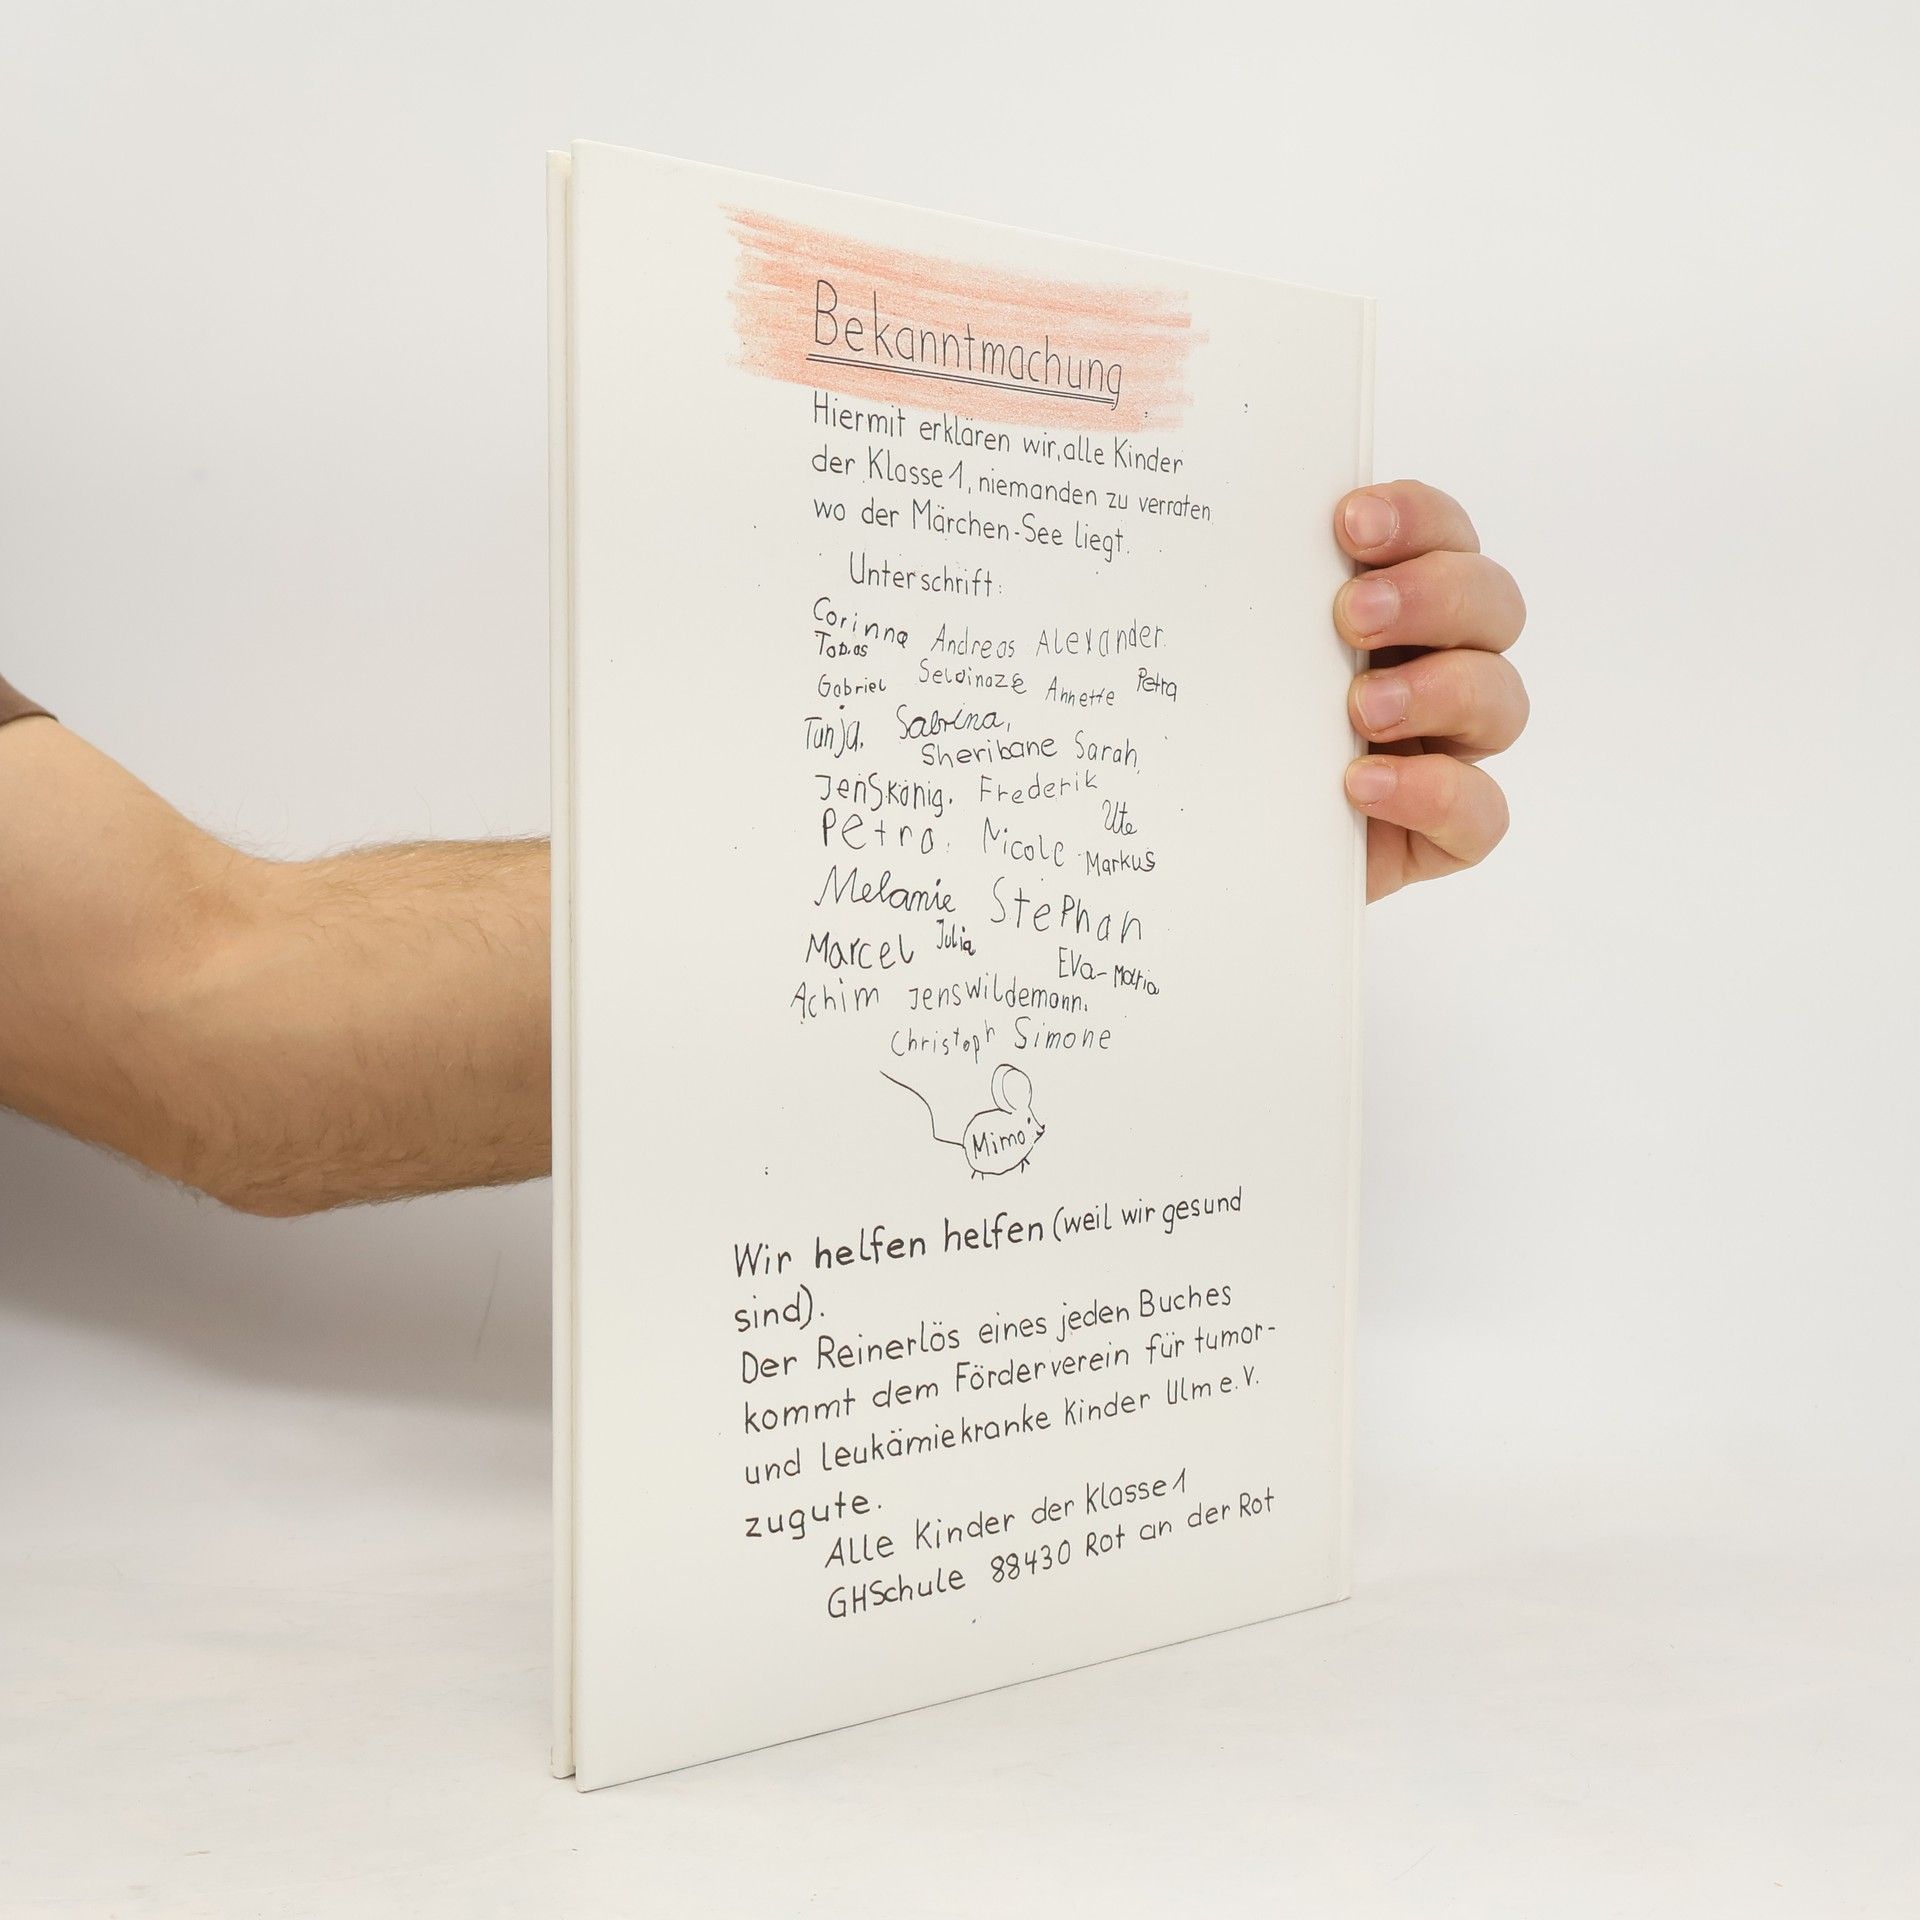 Bekanntmachung
Hiermit erklären wir, alle Kinder
der Klasse 1, niemanden zu verraten
wo der Märchen-See liegt.
Unterschrift:
Corinna Andreas Alexander.
Tobias
Gabriel Annette Petra
Tanja. Sabrina,
Sheribane Sarah,
Jens König. Frederik
Ute
Petra. Nicole Markus
Melanie Stephan
Marcel Julia
Eva-Maria
Achim Jens Wildemann.
Christoph Simone
Mimo
Wir helfen helfen (weil wir gesund
sind).
Der Reinerlös eines jeden Buches
kommt dem Förderverein für tumor-
und leukämiekranke Kinder Ulm e.V.
zugute.
Alle Kinder der Klasse 1
GHSchule 88430 Rot an der Rot